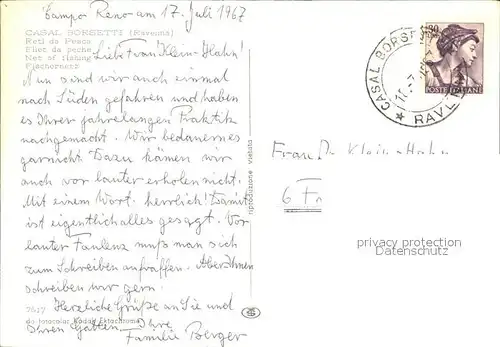 Campo Reno am 17. Juli 1967
CASAL BORSETTI (Ravenna)
Reti da Pesca
Filet da peche
Net of fishing
Fischernetz
Liebe Frau Klein-Hahn!
Nun sind wir auch einmal
nach Süden gefahren und haben
es Ihrer jahrelangen Praktik
nachgemacht. Wir bedauern es
garnicht. Dazu kämen wir
auch vor lauter erholen nicht.
Mit einem Wort: herrlich! Damit
ist eigentlich alles gesagt. Vor
lauter Faulenz muß man sich
zum Schreiben aufraffen. Aber Ihnen
schreiben wir gern.
Herzliche Grüße an Sie und
Ihren Gatten Ihre
Familie Berger
7517
da fotocolor Kodak Ektachrome
riproduzione vietata
POSTE ITALIANE
CASAL BORSETTI
RAVENNA
Frau Dr. Klein-Hahn
6 Fr
privacy protection
Datenschutz